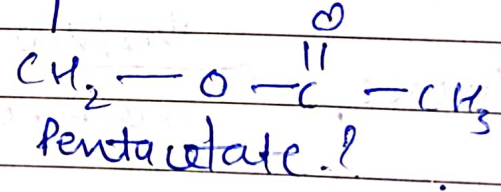 O
||
CH₂ — O — C — CH₃
Pentacetate.?